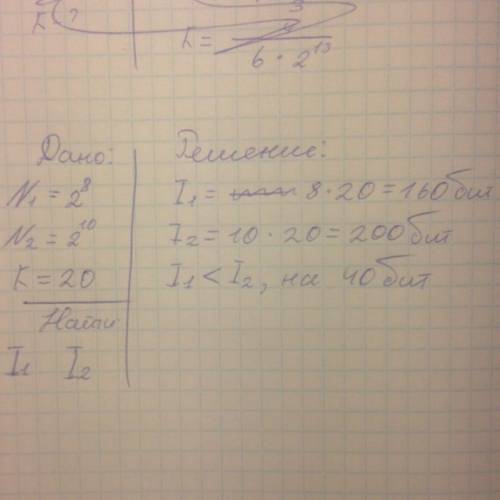 K = ?
K =
6 · 2¹³
Дано:
N₁ = 2⁸
N₂ = 2¹⁰
K = 20
Найти
I₁ I₂
Решение:
I₁ = 8 · 20 = 160 бит
I₂ = 10 · 20 = 200 бит
I₁ < I₂, на 40 бит